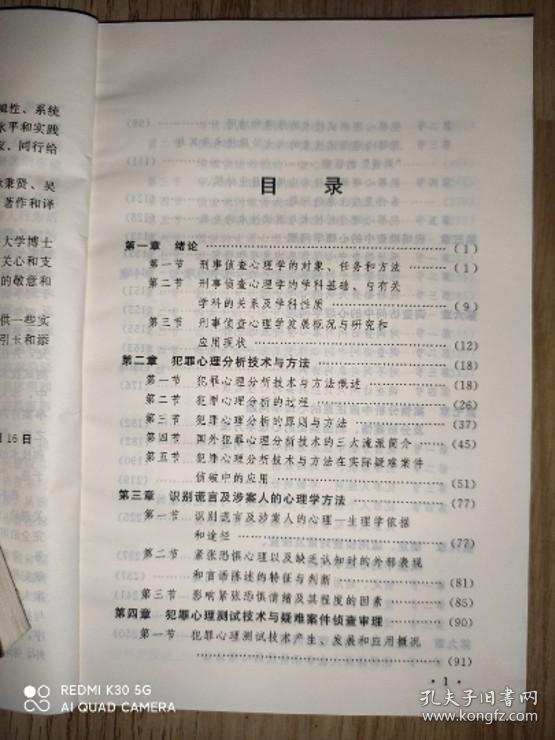 性、系统
水平和实践
同行给
秉贤、吴
著作和译
大学博士
关心和支
的敬意和
供一些实
引长和添
月16日
目 录
第一章 绪论 (1)
第一节 刑事侦查心理学的对象、任务和方法 (1)
第二节 刑事侦查心理学的学科基础、与有关
学科的关系及学科性质 (9)
第三节 刑事侦查心理学发展概况与研究和
应用现状 (12)
第二章 犯罪心理分析技术与方法 (18)
第一节 犯罪心理分析技术与方法概述 (18)
第二节 犯罪心理分析的过程 (26)
第三节 犯罪心理分析的原则与方法 (37)
第四节 国外犯罪心理分析技术的三大流派简介 (45)
第五节 犯罪心理分析技术与方法在实际疑难案件
侦破中的应用 (51)
第三章 识别谎言及涉案人的心理学方法 (77)
第一节 识别谎言及涉案人的心理—生理学依据
和途径 (77)
第二节 紧张恐惧心理以及缺乏认知时的外部表现
和言语陈述的特征与判断 (81)
第三节 影响紧张恐惧情绪及其程度的因素 (85)
第四章 犯罪心理测试技术与疑难案件侦查审理 (90)
第一节 犯罪心理测试技术产生、发展和应用概况
(91)
· 1 ·
REDMI K30 5G
AI QUAD CAMERA
孔夫子旧书网
www.kongfz.com